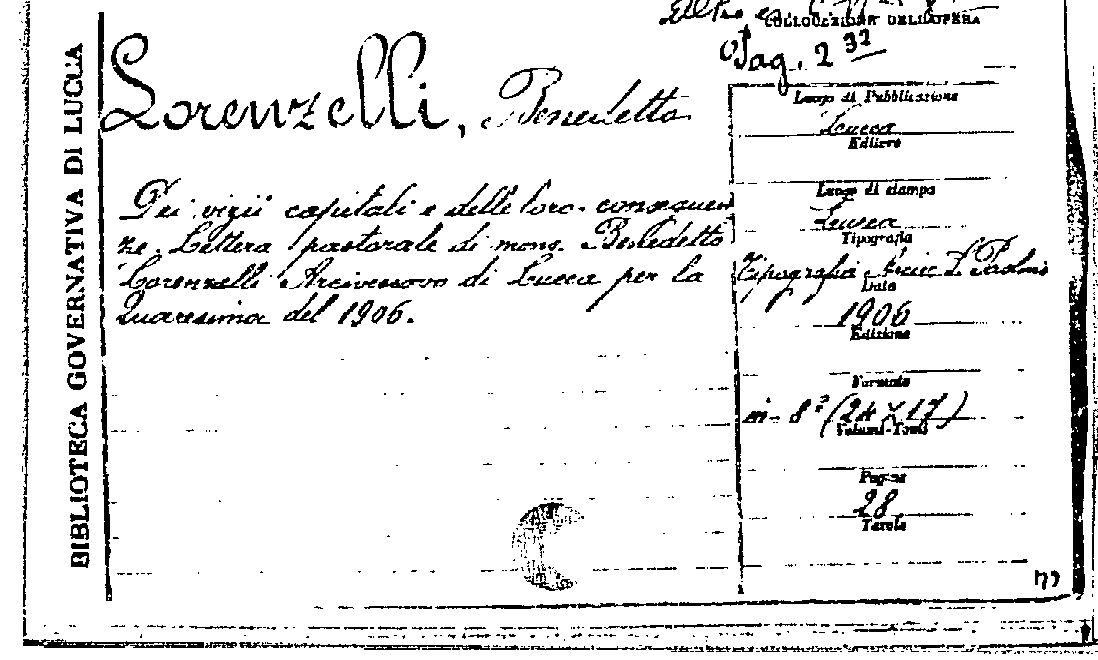 BIBLIOTECA GOVERNATIVA DI LUCCA
COLLOCAZIONE DELL'OPERA
Pag. 2 32
Lorenzelli, Benedetto
Dei vizii capitali e delle loro conseguen
ze. Lettera pastorale di mons. Benedetto
Lorenzelli Arcivescovo di Lucca per la
Quaresima del 1906.
Luogo di Pubblicazione
Lucca
Editore
Luogo di stampa
Lucca
Tipografia
Tipografia Arciv. S. Paolino
Data
1906
Edizione
Formato
in-8º (24 x 17)
Volumi-Tomi
Pagine
28
Tavole